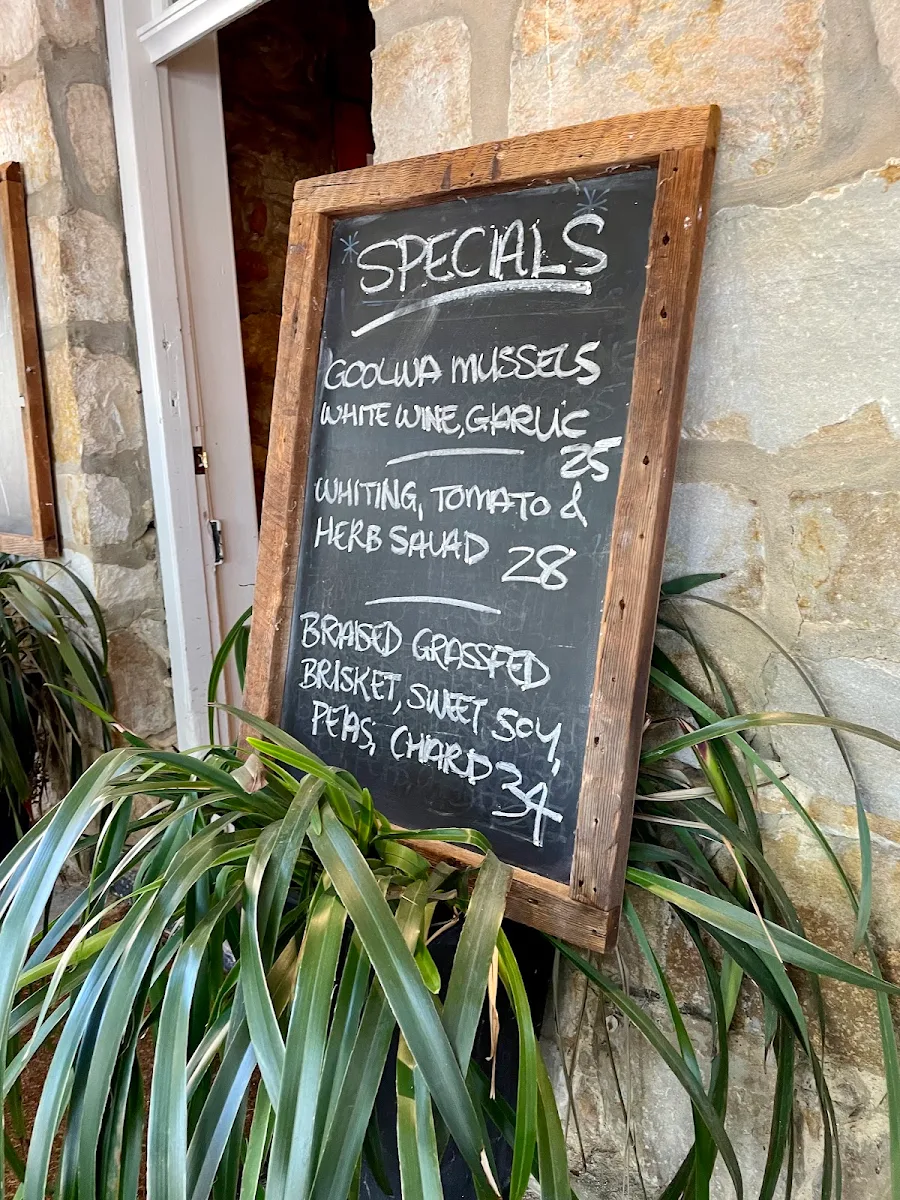 SPECIALS
GOOLWA MUSSELS
WHITE WINE, GARLIC
25
WHITING, TOMATO &
HERB SALAD 28
BRAISED GRASSFED
BRISKET, SWEET SOY,
PEAS, CHARD 34